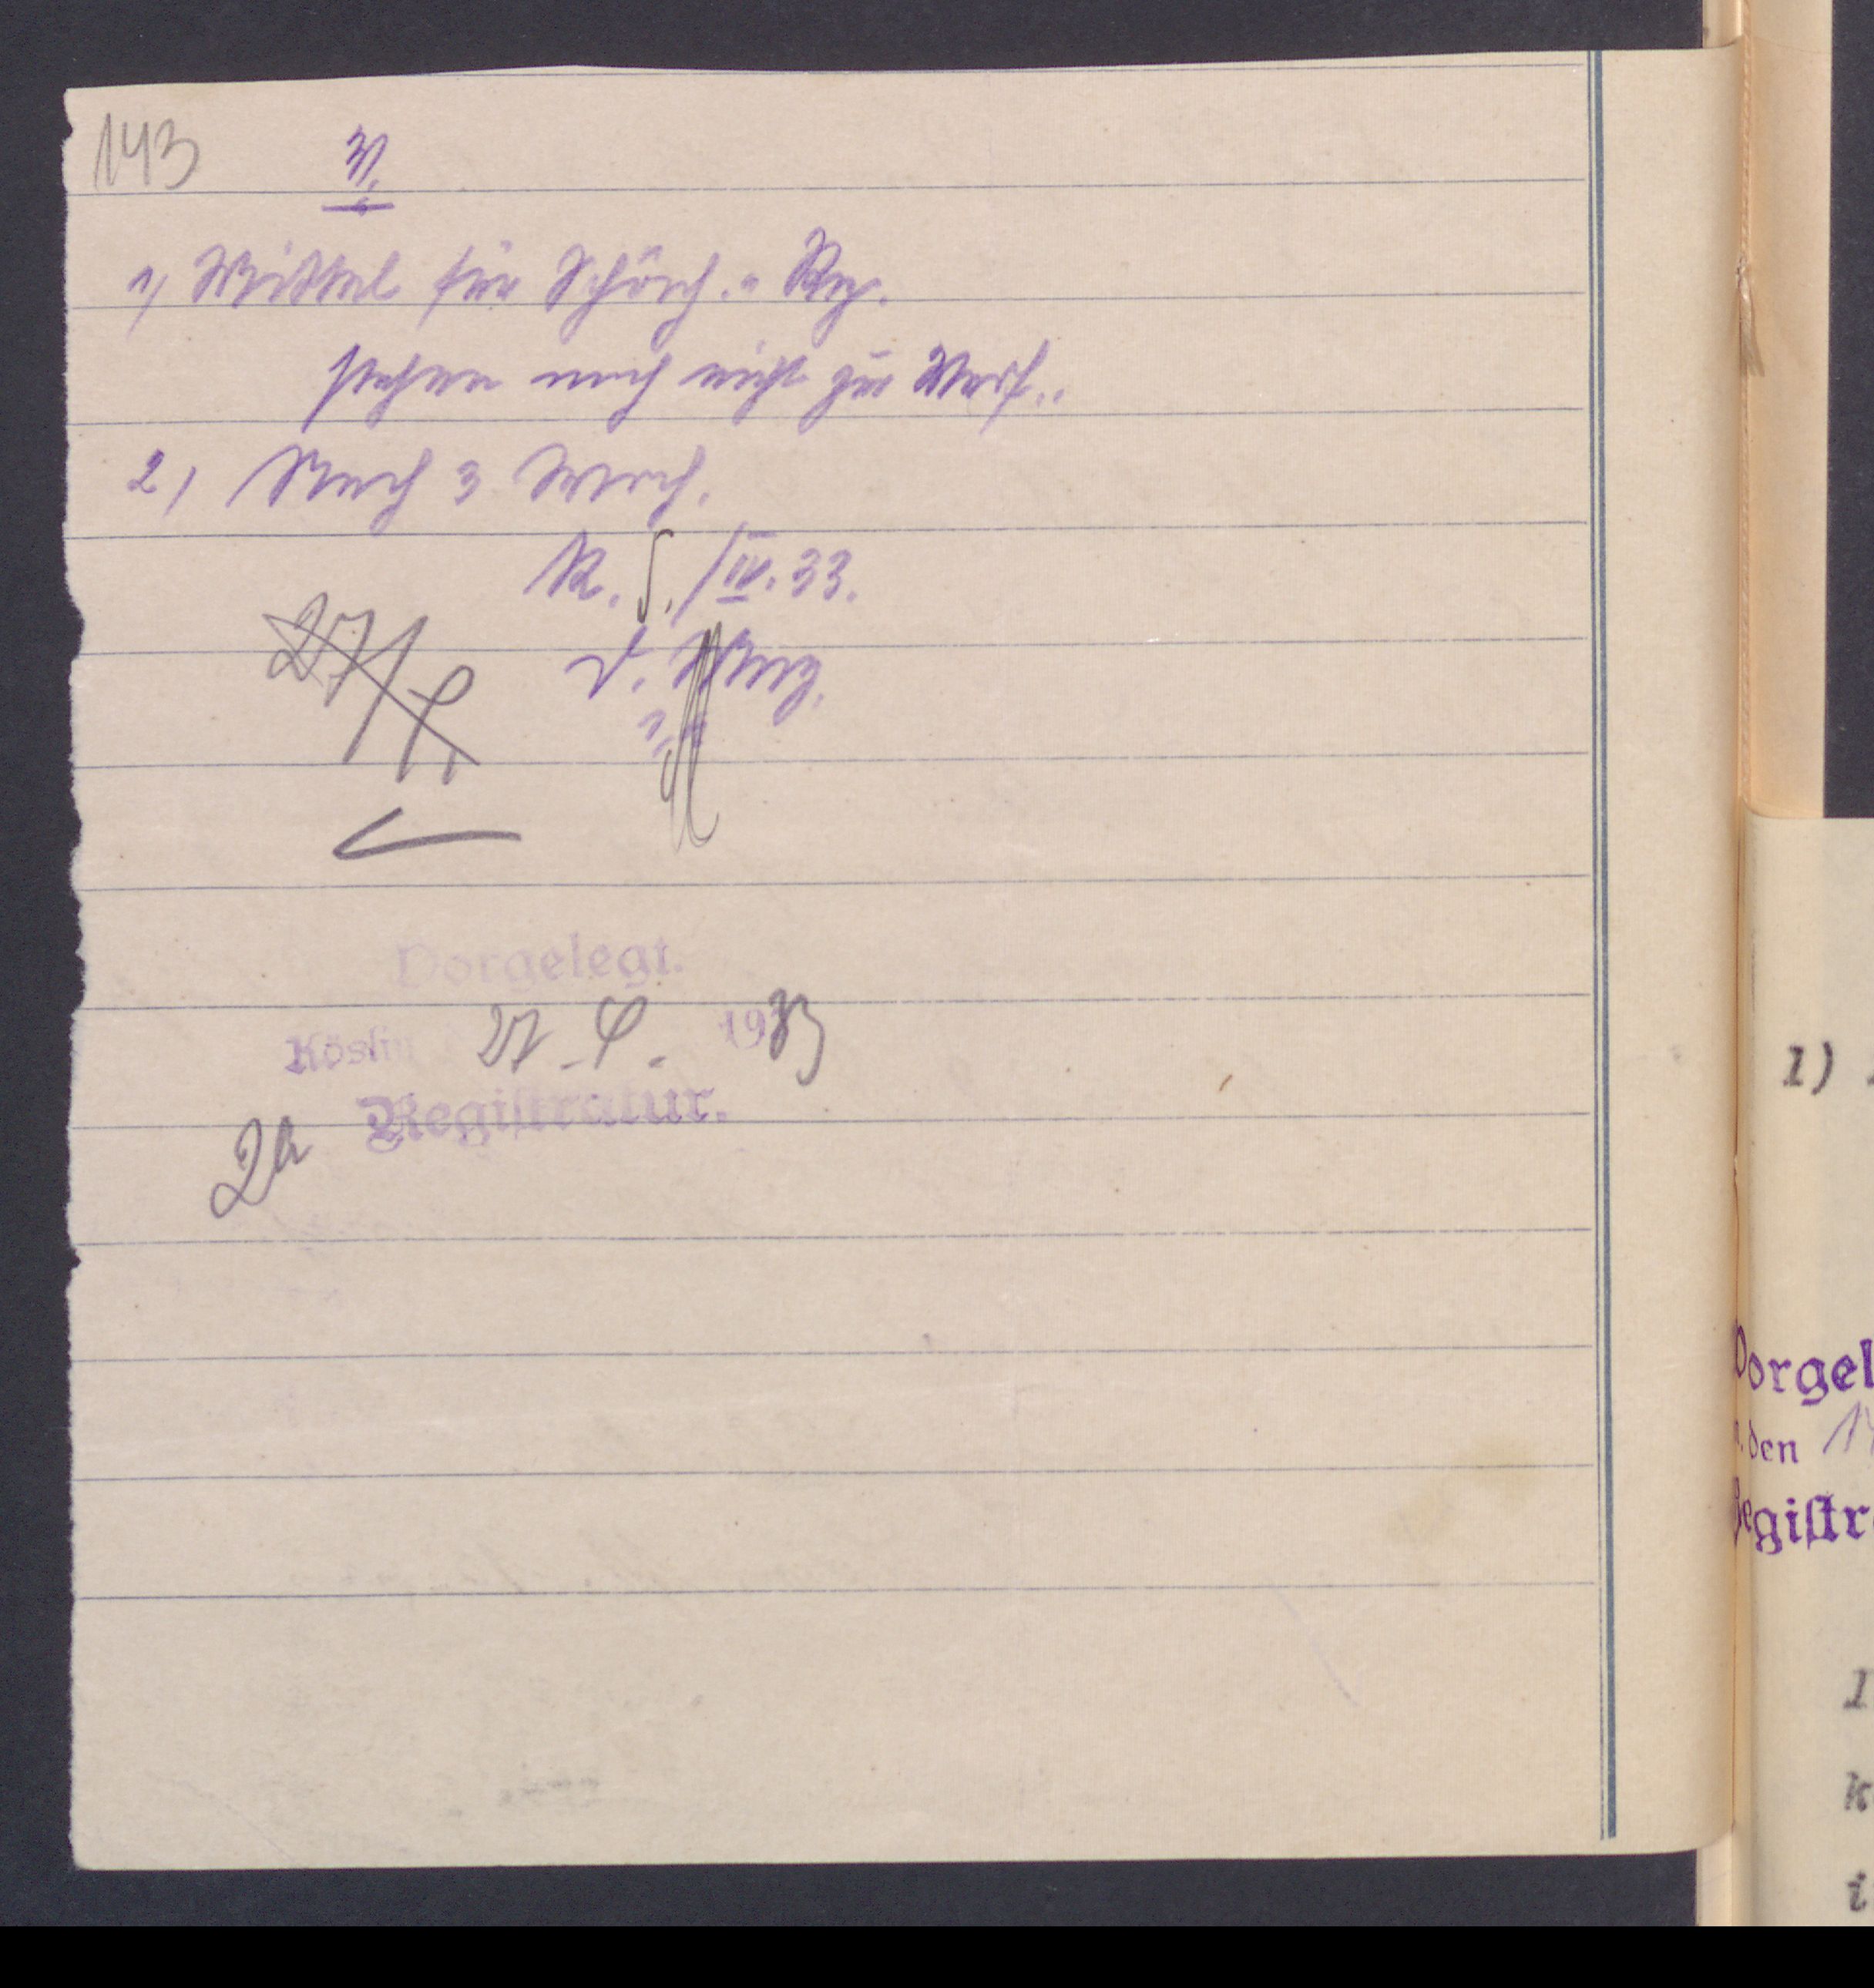 143
V.
1) Mittel für
stehen noch nicht zur Verf..
2) Nach 3 Woch.
K. 5./IV.33.
27/4.
Vorgelegt.
Köslin 27.4. 1933
Registratur.
1)
Vorgel
den 14
Registr
1
k
i